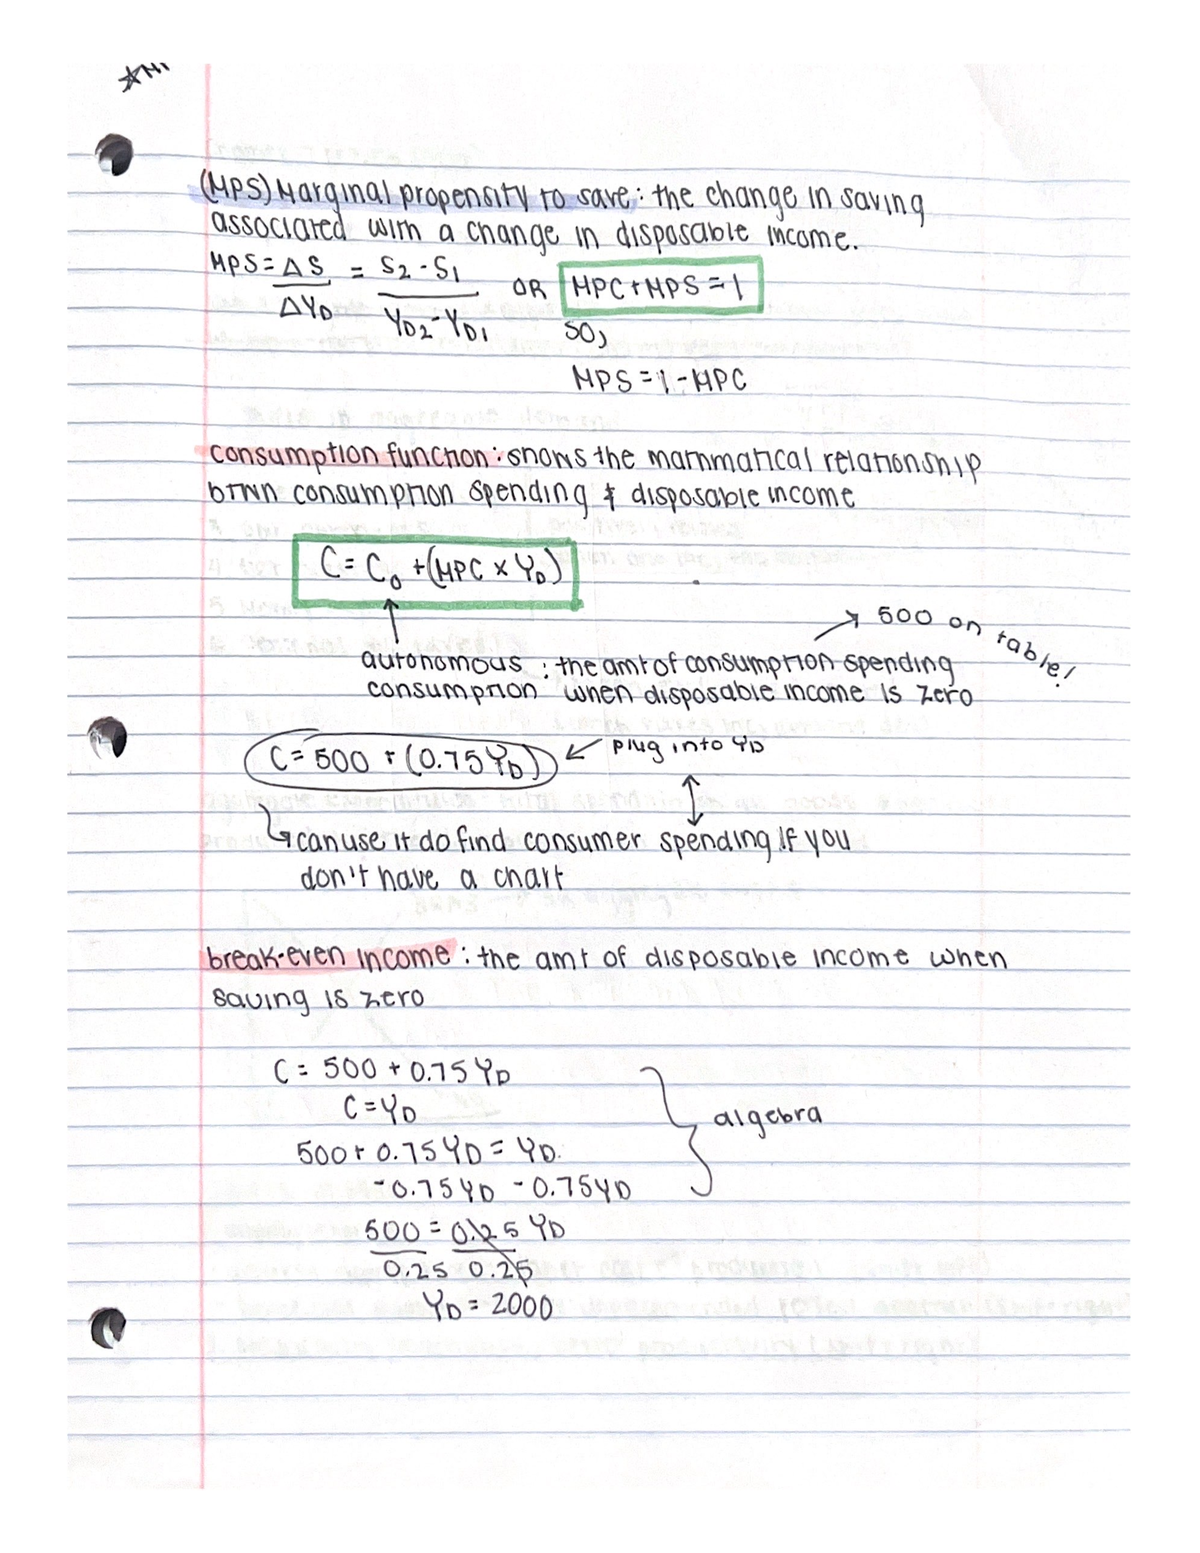 (MPS) Marginal propensity to save: the change in saving
associated with a change in disposable income.
MPS = ΔS/ΔYD = S2-S1/YD2-YD1 OR MPC+MPS=1
so,
MPS=1-MPC
consumption function: shows the mathmatical relationship
btwn consumption spending & disposable income
C= C0 +(MPC x YD)
→ 500 on table!
autonomous : the amt of consumption spending
consumption when disposable income is zero
C=500 + (0.75YD) ← plug into YD
↳ can use it do find consumer spending if you
don't have a chart
break-even income: the amt of disposable income when
saving is zero
C= 500 + 0.75 YD
C=YD
algebra
500+ 0.75YD = YD
-0.75YD -0.75YD
500 = 0.25 YD
0.25 0.25
YD = 2000